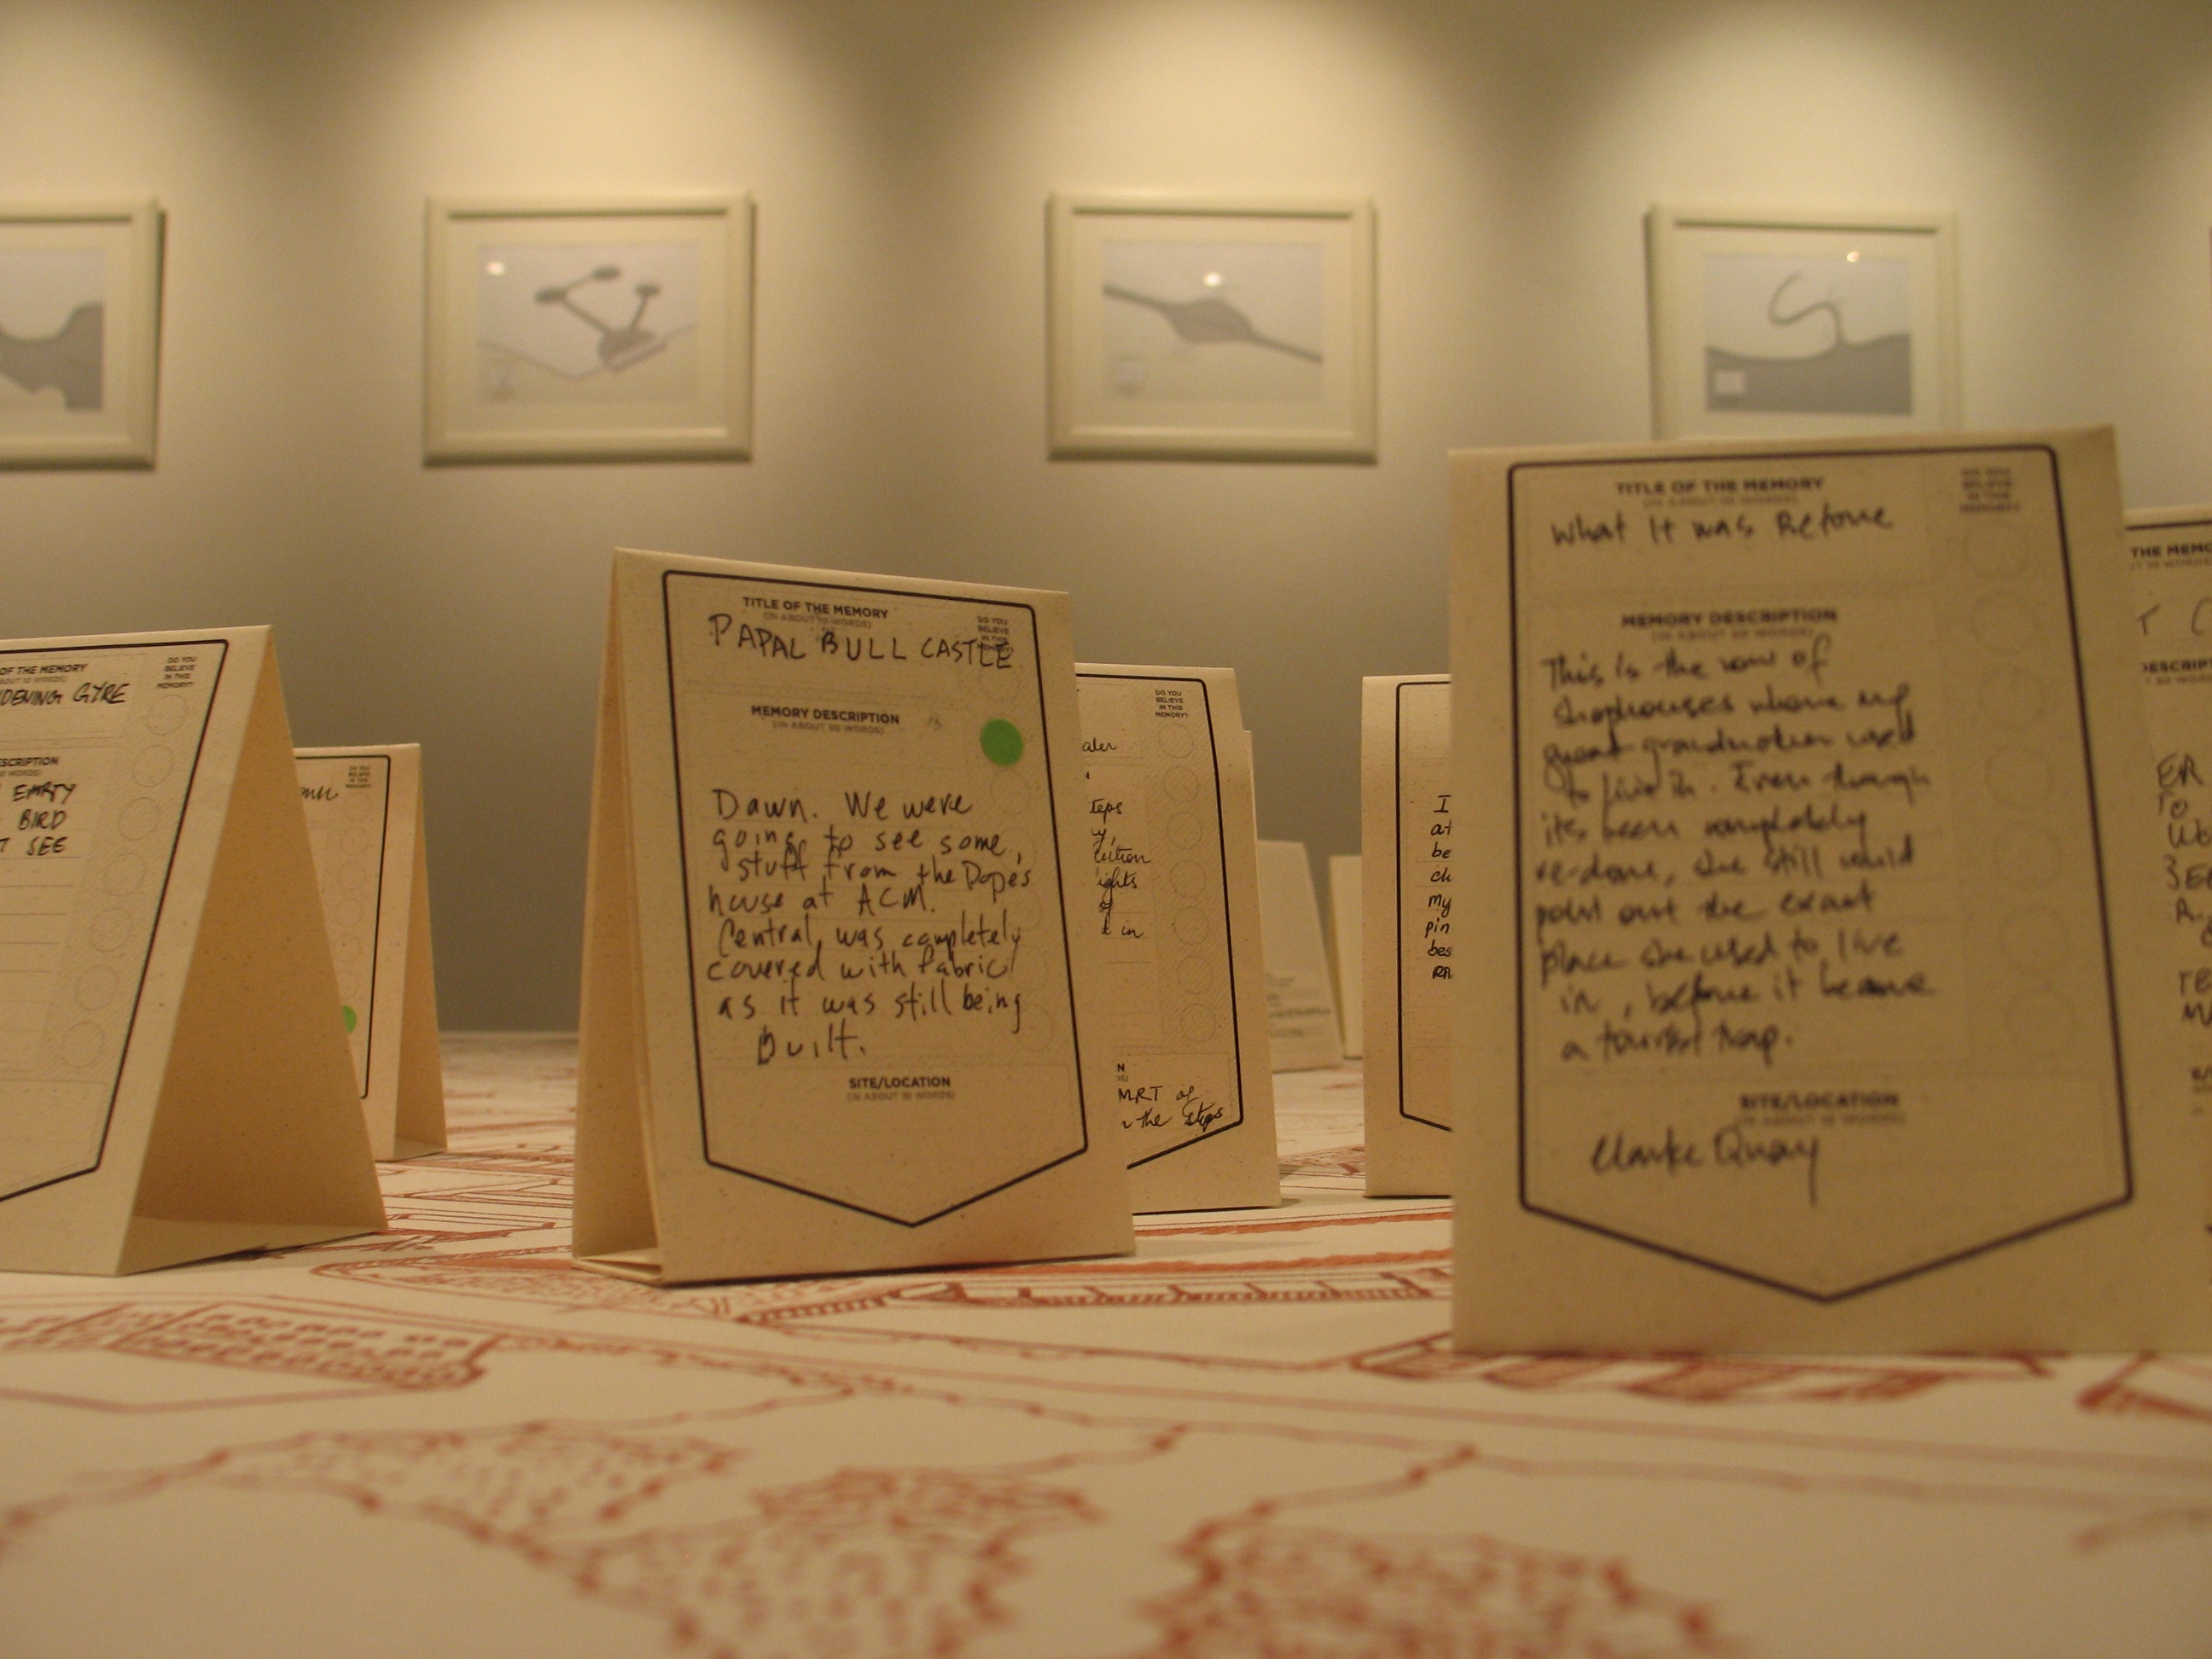 OF THE MEMORY
DENING GYRE
DO YOU
BELIEVE
IN THIS
MEMORY?
EMPTY
BIRD
SEE
TITLE OF THE MEMORY
(IN ABOUT 10 WORDS)
PAPAL BULL CASTLE
DO YOU
BELIEVE
IN THIS
MEMORY DESCRIPTION
(IN ABOUT 90 WORDS)
Dawn. We were
going to see some
stuff from the Pope's
house at ACM.
Central was completely
covered with fabric
as it was still being
built.
SITE/LOCATION
(IN ABOUT 10 WORDS)
DO YOU
BELIEVE
IN THIS
MEMORY?
ights
in
MRT
the steps
I
at
be
ch
my
pin
bes
TITLE OF THE MEMORY
(IN ABOUT 10 WORDS)
What It was Before
DO YOU
BELIEVE
IN THIS
MEMORY?
MEMORY DESCRIPTION
This is the row of
shophouses where my
great grandmother used
to live in. Even though
its been completely
re-done, she still would
point out the exact
place she used to live
in, before it became
a tourist trap.
SITE/LOCATION
(IN ABOUT 10 WORDS)
Clarke Quay
THE MEMO
ER
TO